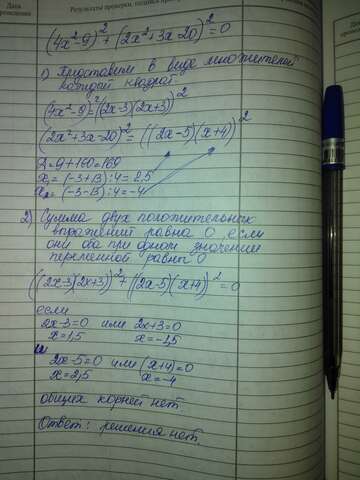 Дата
Результаты проверки,
(4x²-9)² + (2x²+3x-20)² = 0
1) Представим в виде множителей
каждый квадрат.
(4x²-9)²=((2x-3)(2x+3))²
(2x²+3x-20)² = ((2x-5)(x+4))²
D = 9+160=169
x₁ = (-3+13):4=2,5
x₂ = (-3-13):4=-4
2) Сумма двух положительных
выражений равна 0, если
они оба при одном значении
переменной равны 0
((2x-3)(2x+3))²+((2x-5)(x+4))²=0
если
2x-3=0 или 2x+3=0
x=1,5 x=-1,5
и
2x-5=0 или (x+4)=0
x=2,5 x=-4
общих корней нет.
Ответ: решения нет.